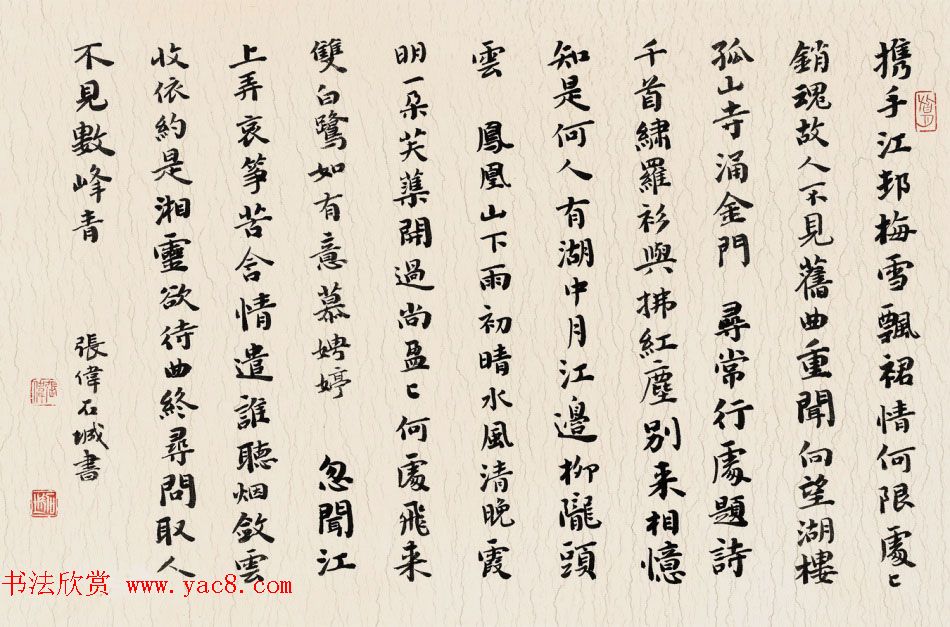 携手江邨梅雪飄裙情何限處〻
銷魂故人不見舊曲重聞向望湖樓
孤山寺涌金門　尋常行處題詩
千首繡羅衫與拂紅塵别来相憶
知是何人有湖中月江邊柳隴頭
雲　鳳凰山下雨初晴水風清晚霞
明一朵芙蕖開過尚盈〻何處飛来
雙白鷺如有意慕娉婷　忽聞江
上弄哀筝苦含情遣誰聽烟斂雲
收依約是湘靈欲待曲終尋問取人
不見數峰青
張偉石城書
书法欣赏 www.yac8.com